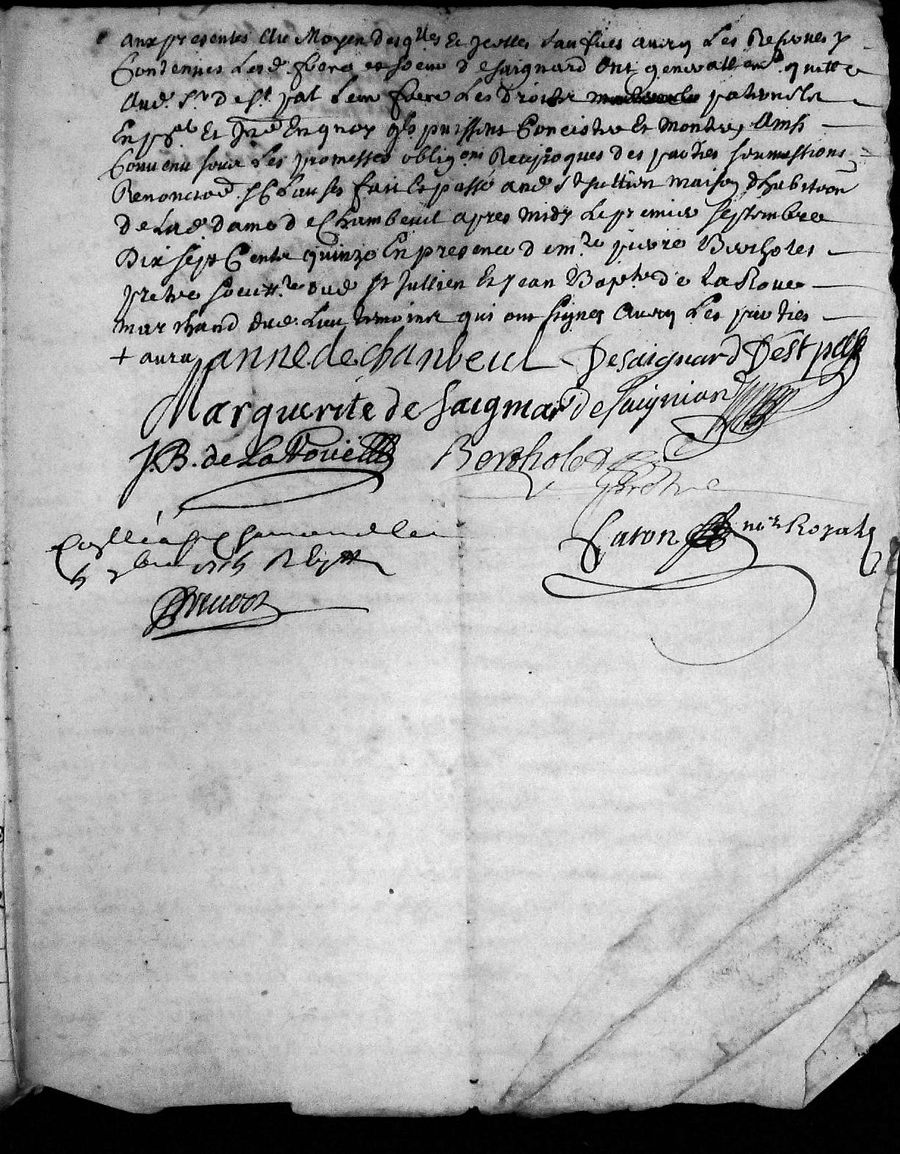 aux presentes Au Moyen desq.lles Et Jcelles sauf avecq Les Reserves y
Contenues Lesd. frere et soeur desaignard Ont generallem.t quitté
Aud. S.r de S.t pal Leur frere Les Droits paternels
En p.al Et En quoy q.ls puissent Concister Et Monter, Ainsi
Convenu soubz Les promesses obliga.ons Reciproques des parties soumissions
Renonciaõns & Clauses fait Et passé aud. S.t Jullien maison d'habitaõn
de Lad. dame de Chambeuil apres midy Le premier septembre
Dix sept Cents quinze En presence de m.re pierre Bertholet
pretre dud. S.t Jullien Et Jean Bap.te de La Roue
marchand dud. Lieu temoins qui ont signes Avecq Les parties
+ anne de chanbeul Desaignard Dest pal
Marguerite de Saignard de saignard
J.B. de La Roue Bertholet
pretre
Caton no.re Royal